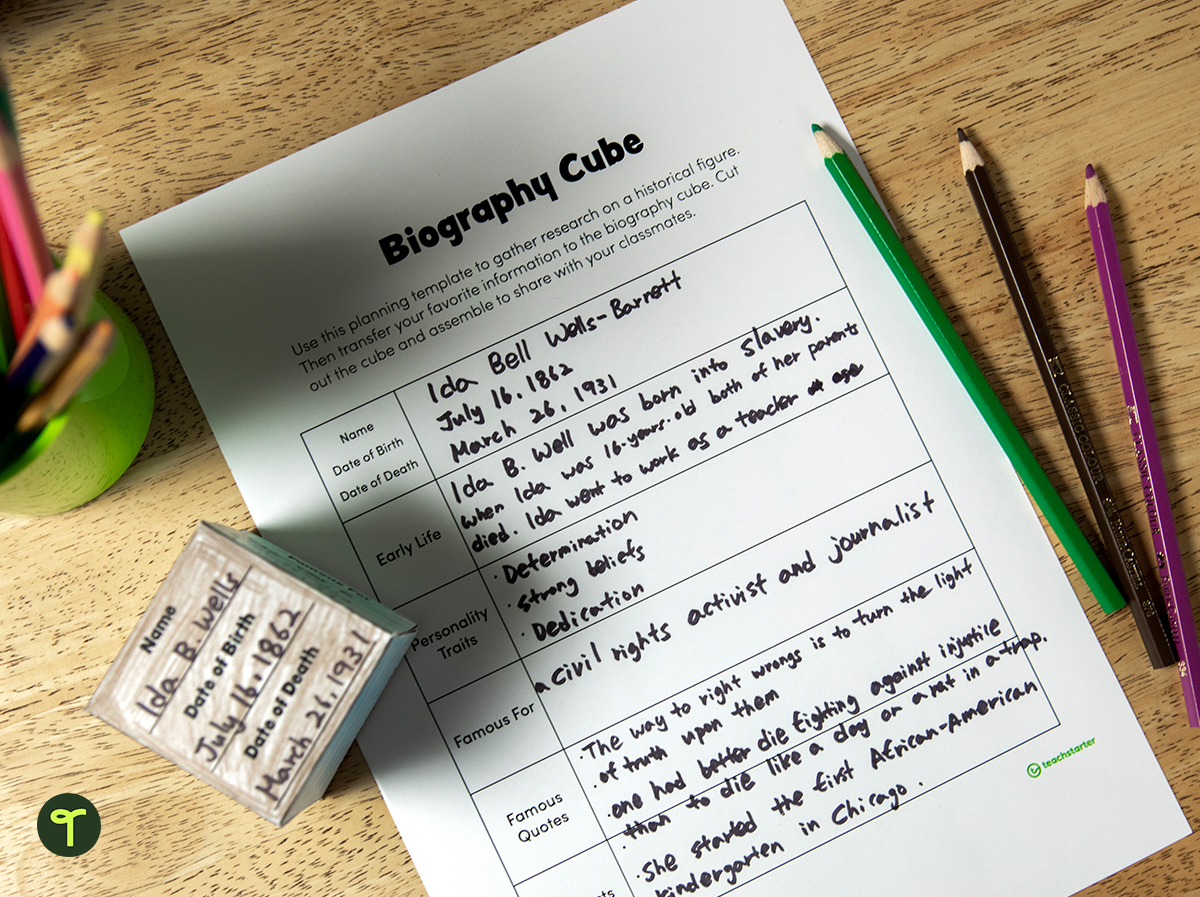 Biography Cube
Use this planning template to gather research on a historical figure.
Then transfer your favorite information to the biography cube. Cut
out the cube and assemble to share with your classmates.
Name
Date of Birth
Date of Death
Ida Bell Wells-Barrett
July 16, 1862
March 26, 1931
Early Life
Ida B. Well was born into slavery.
when Ida was 16-years-old both of her parents
died. Ida went to work as a teacher at age
Personality
Traits
· Determination
· strong beliefs
· Dedication
Famous For
a civil rights activist and journalist
Famous
Quotes
· The way to right wrongs is to turn the light
· of truth upon them
· one had better die fighting against injustice
· than to die like a dog or a rat in a trap.
· She started the first African-American
kindergarten in Chicago.
teachstarter
Name
Ida B. Wells
Date of Birth
July 16, 1862
Date of Death
March 26, 1931